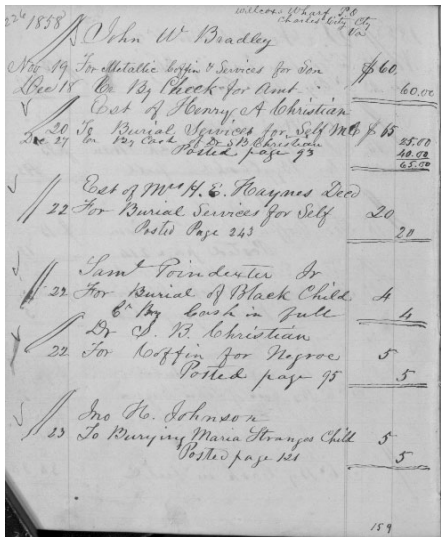 226 1858
Wilcoxs Wharf P.O
Charles City Cty
Va
John W. Bradley
Nov 19 For Metallic Coffin & Services for Son $60.
Dec 18 Cr By Check for Amt 60.00
Est of Henry A Christian
20 To Burial Services for Self MC $65
Dec 27 Cr By Cash of Dr S B Christian 25.00
Posted page 93 40.00
65.00
Est of Mrs H. E. Haynes Decd
22 For Burial Services for Self 20
Posted Page 243 20
Saml Poindexter Jr
22 For Burial of Black Child 4
Cr By Cash in full 4
Dr S. B. Christian
22 For Coffin for Negroe 5
Posted page 95 5
Jno H. Johnson
23 To Burying Maria Stranges Child 5
Posted page 121 5
159